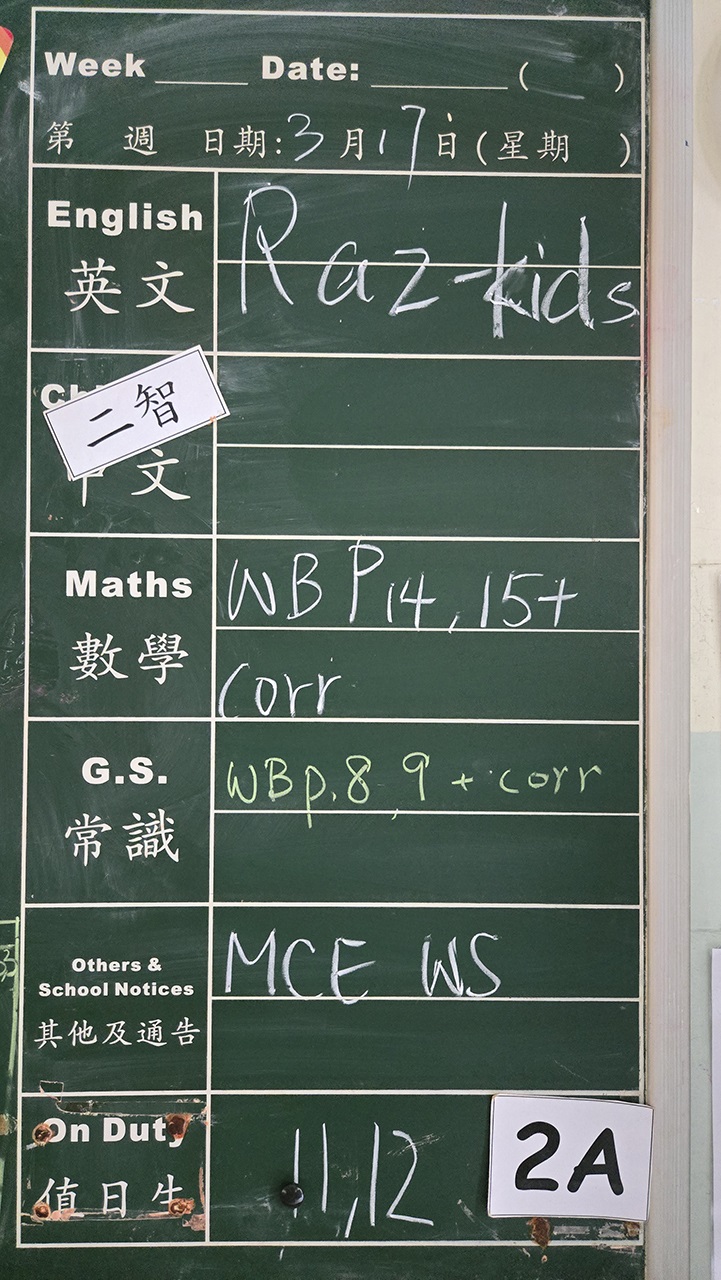 Week ____ Date: ______ ( )
第 週 日期:3月17日(星期 )
English
英文
Raz-kids
二智
文
Maths
數學
WB P14, 15+
corr
G.S.
常識
WBp.8, 9 + corr
Others &
School Notices
其他及通告
MCE WS
On Duty
值日生
11,12
2A